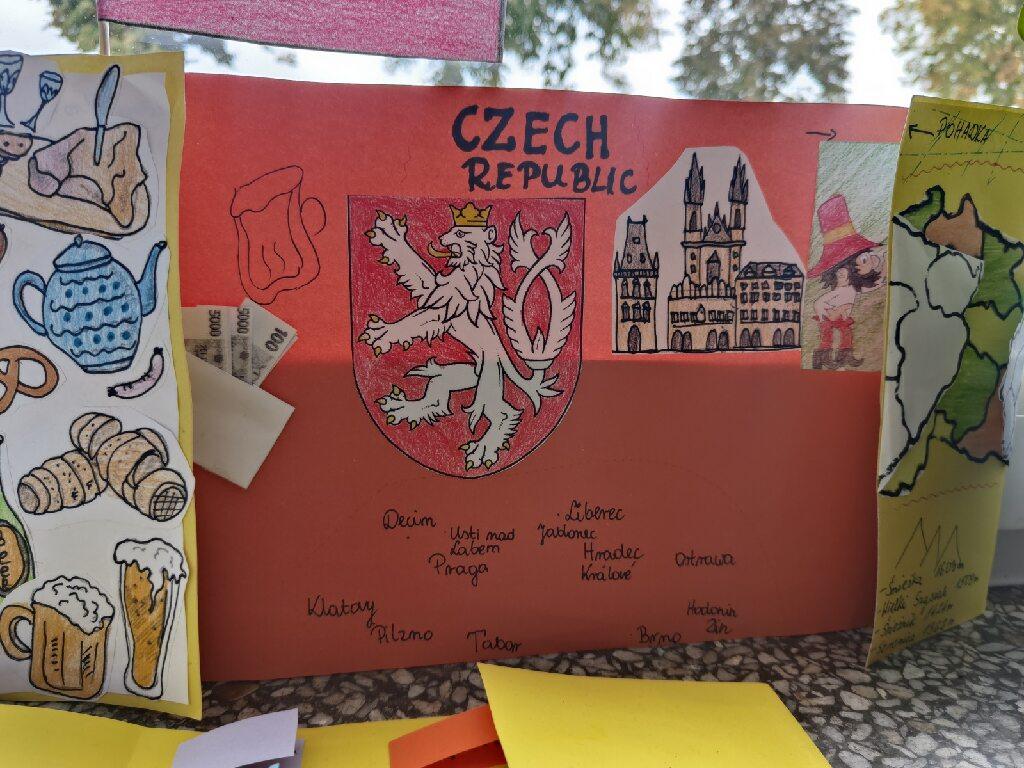 CZECH
REPUBLIC
POHADKA
5000
5000
100
Decim
Usti nad
Labem
Praga
Liberec
Jablonec
Hradec
Králové
Ostrawa
Klatovy
Pilzno
Tabor
Brno
Hodonin
Zlin
-Śnieżka 1603m